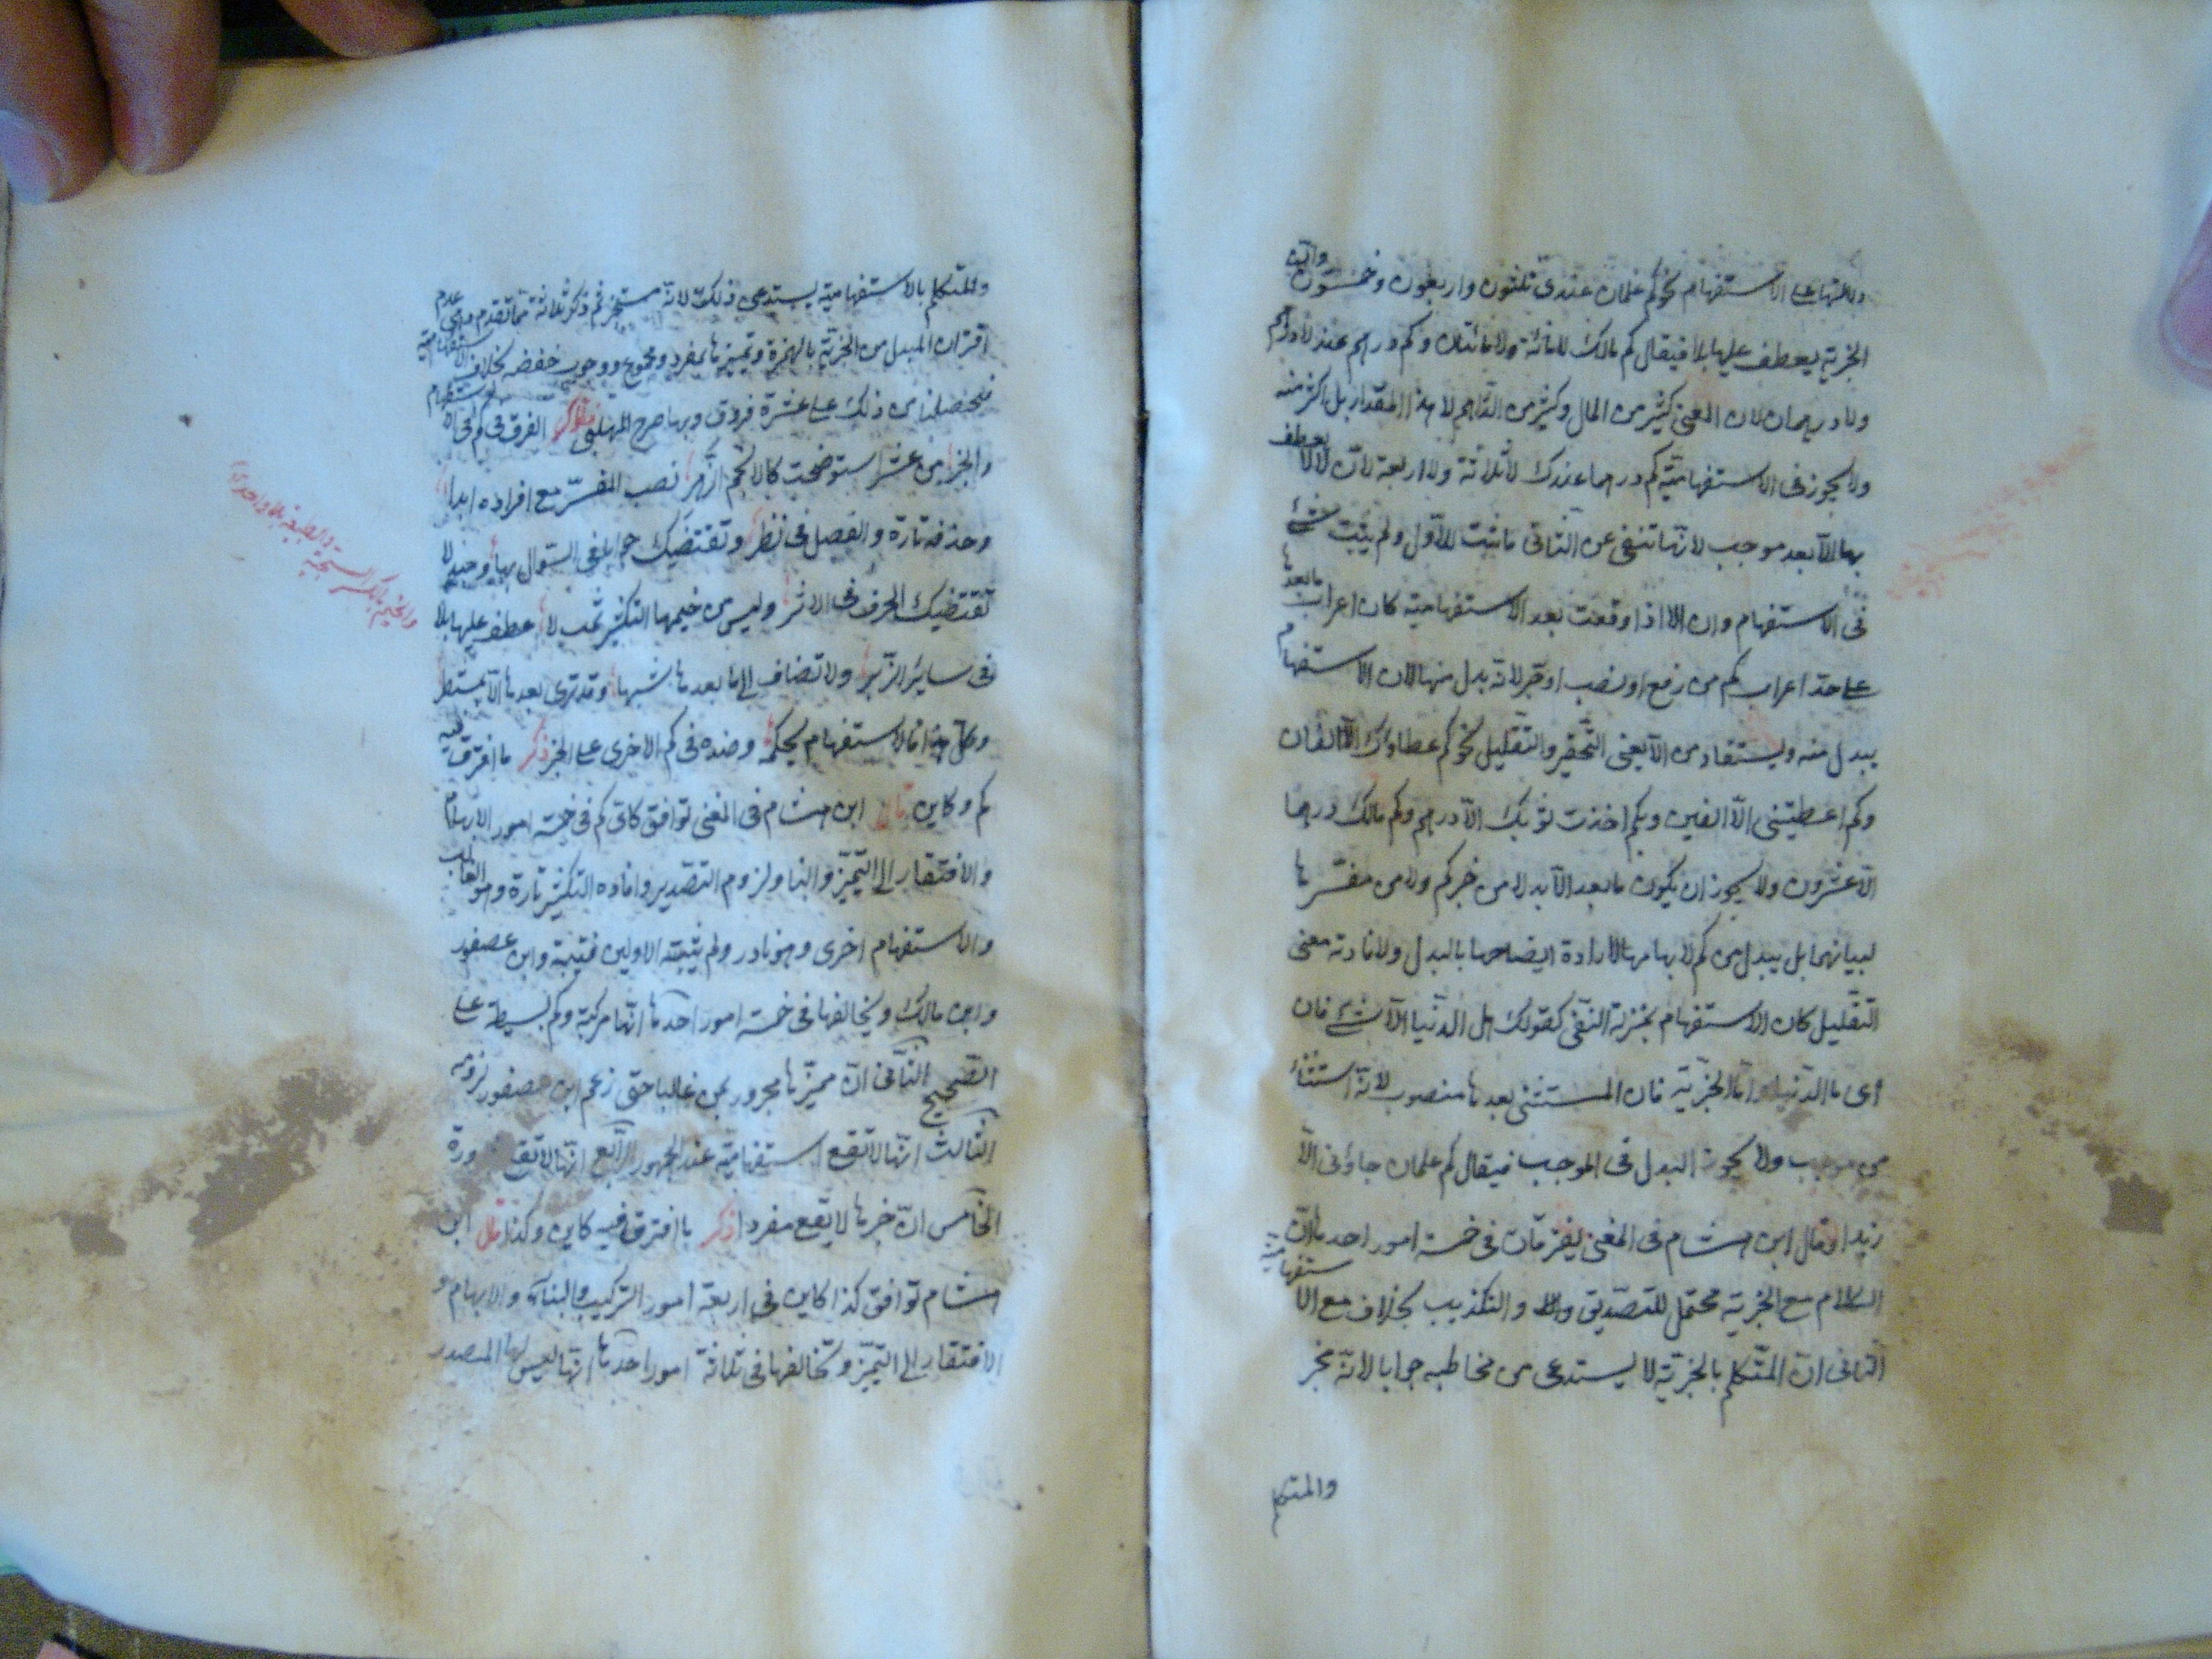 ودلالتها على الاستفهام نحو كم غلمان عندى ثلثون واربعون وخمسون وان
الخبرية يعطف عليها بلا فيقال كم مالك لا مائة ولا مائتان وكم درهم عندك لا درهم
ولا درهمان لان المعنى كثير من المال وكثير من الدراهم لا هذا المقدار بل اكثر منه
ولا يجوز فى الاستفهامية كم درهما عندك لا ثلاثة ولا اربعة لان لا لا يعطف
بها الا بعد موجب لانها تنفى عن الثانى ما ثبت للاول ولم يثبت شئ
فى الاستفهام وان الا اذا وقعت بعد الاستفهامية كان اعراب ما بعدها
على حد اعراب كم من رفع او نصب او جر لانه بدل منها لان الاستفهام
يبدل منه ويستفاد من الا معنى التحقير والتقليل نحو كم عطاؤك الا الفان
وكم اعطيتنى الا الفين وبكم اخذت ثوبك الا درهم وكم مالك درهما
الا عشرون ولا يجوز ان يكون ما بعد الا بدلا من خبر كم ولا من مفسرها
لبيانهما بل يبدل من كم لابهامها لارادة ايضاحها بالبدل ولافادته معنى
التقليل كان الاستفهام بمنزلة النفى كقولك هل الدنيا الا شئ فان
اى ما الدنيا واما الخبرية فان المستثنى بعدها منصوب لانه استثناء
من موجب ولا يجوز البدل فى الموجب فيقال كم غلمان جاؤنى الا
زيدا وقال ابن هشام فى المغنى يفترقان فى خمسة امور احدها ان
الكلام مع الخبرية محتمل للتصديق والتكذيب بخلافه مع الاستفهامية
الثانى ان المتكلم بالخبرية لا يستدعى من مخاطبه جوابا لانه مخبر
والمتكلم
والمتكلم بالاستفهامية يستدعى ذلك لانه مستخبر ثم ذكر ثلاثة مما تقدم وهى عدم
اقتران المبدل من الخبرية بالهمزة وتمييزها بمفرد ومجموع ووجوب خفضه بخلاف الاستفهامية
فتحصلنا من ذلك على عشرة فروق وبها صرح المهلبى فقال الفرق فى كم فى الاستفهام
والخبر من عشر استوضحت كالانجم الزهر نصب المفسر مع افراده ابدا
وحذفه تارة والفصل فى نظر وتقتضيك جوابا فى السؤال بها وحينئذ لا
تقتضيك الحرف فى الاثر وليس من خيمها التكثير ثمت لا عطف عليها بلا
فى سائر الزبر ولا تضاف الى ما بعدها شبها وقد ترى بعدها الا بمستطر
وكل هذا فالاستفهام يحكمه وضده فى كم الاخرى على الخبر ذكر ما افترق فيه
كم وكاين قال ابن هشام فى المغنى توافق كاى كم فى خمسة امور الابهام
والافتقار الى التمييز والبنا ولزوم التصدير وافادة التكثير تارة وهو الغالب
والاستفهام اخرى وهو نادر ولم يثبته الا ابن قتيبة وابن عصفور
وابن مالك ويخالفها فى خمسة امور احدها انها مركبة وكم بسيطة على
الصحيح الثانى ان مميزها مجرور بمن غالبا حتى زعم ابن عصفور لزومه
الثالث انها لا تقع استفهامية عند الجمهور الرابع انها لا تقع
الخامس ان خبرها لا يقع مفردا ذكر ما افترق فيه كاين وكذا قال ابن
هشام توافق كذا كاين فى اربعة امور التركيب والبناء والابهام و
الافتقار الى التمييز وتخالفها فى ثلاثة امور احدها انها ليس لها الصدر
والخيم بالكسر السجية والطبيعة